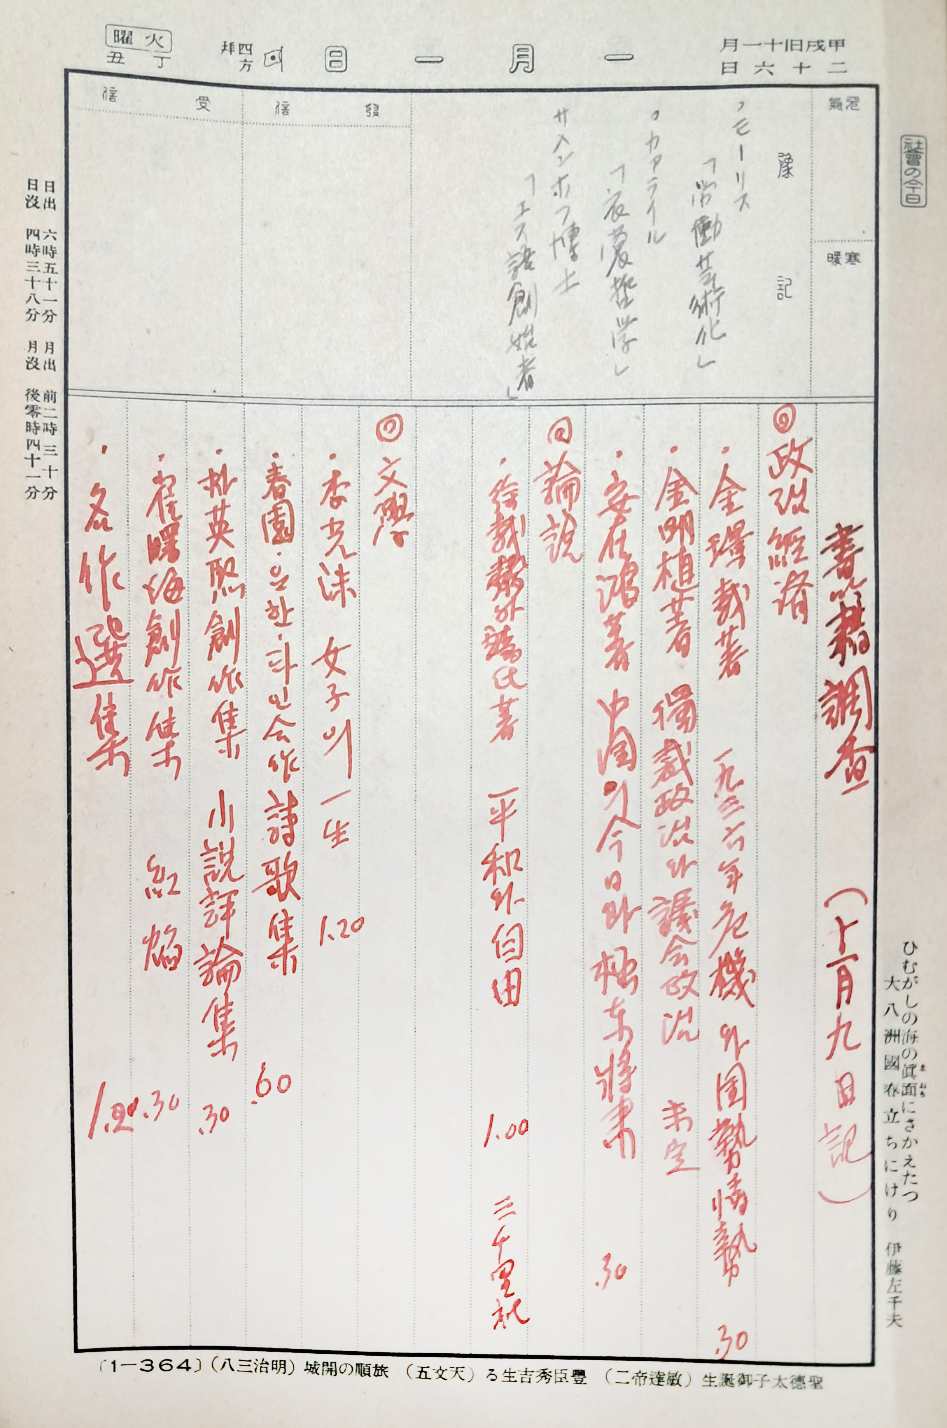 甲戌旧十一月
二十六日
一月一日
四方拜
火曜
丁丑
社會の今日
天氣
寒暖
豫記
・モーリス
「労働芸術化」
・カアライル
「衣裳哲学」
サメンホフ博士
「エス語創始者」
發信
受信
書籍調査 (十一月九日記)
◎政治経済
・金璟載著 一九三六年危機와国勢情勢 .30
・金明植著 獨裁政治와議会政治 未定
・安在鴻著 中国의今日과極東将来 .30
◎論説
・徐載弼外諸氏著 平和와自由 1.00 三千里社
◎文學
・李光洙 女子의一生 1.20
・春園・요한・파인合作詩歌集 .60
・朴英熙創作集 小説評論集 .30
・崔曙海創作集 紅焰 .30
・名作選集
日出 六時五十一分 月出 前二時三十分
日沒 四時三十八分 月沒 後零時四十一分
ひむがしの海の眞面にさかえたつ
大八洲國春立ちにけり 伊藤左千夫
聖德太子御誕生(敏達帝二) 豐臣秀吉生る(天文五) 旅順の開城(明治三八)〔1—364〕